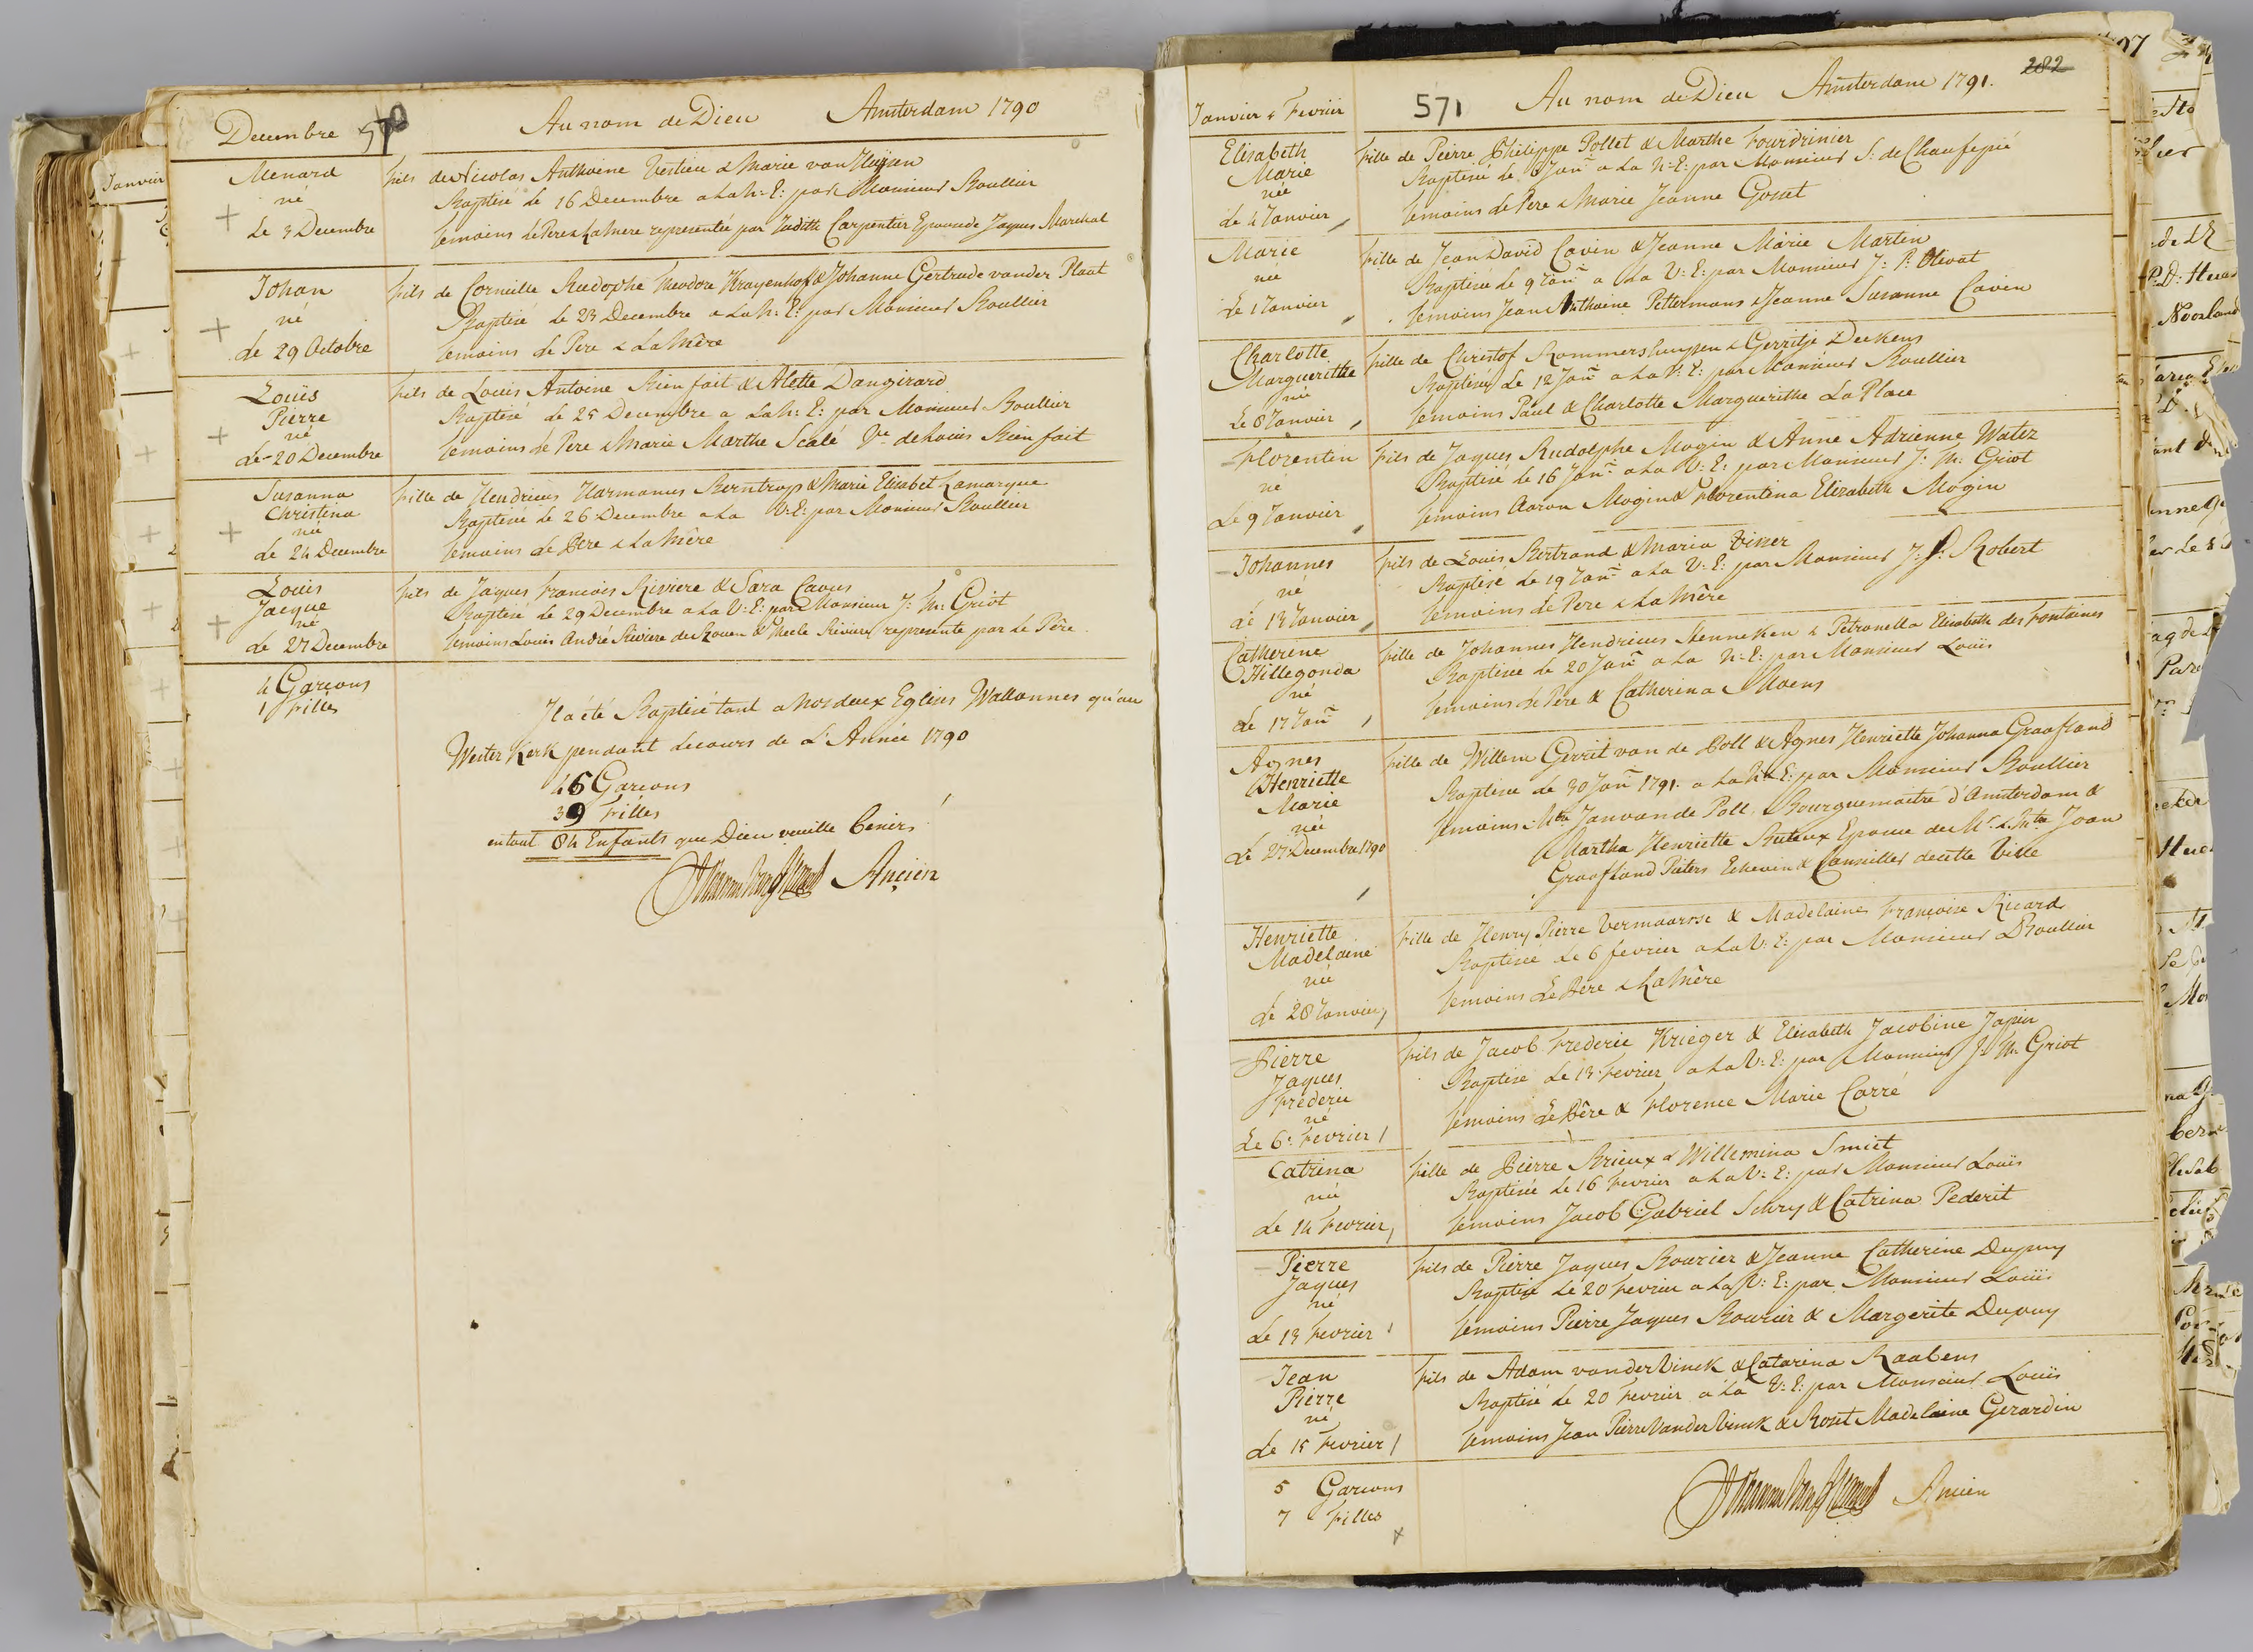 Decembre
Au nom de Dieu Amsterdam 1790
Menard
né
Le 3 Decembre
fils de Nicolas Anthoine Vestieu & Marie van Huÿsen
Baptisé le 16 Decembre a La N: E: par Monsieur Boullier
temoins Le Pere & La Mere representée par Judith Carpentier Epouse de Jaques Marechal
Johan
né
Le 29 Octobre
fils de Corneille Rudophe Theodore Krayenhof & Johanne Gertrude vander Plaat
Baptisé le 23 Decembre a La N: E: par Monsieur Boullier
temoins Le Pere & La Mère
Louïs
Pierre
né
Le 20 Decembre
fils de Louis Antoine Bienfait & Alette Dangirard
Baptisé le 25 Decembre a La N: E: par Monsieur Boullier
temoins le Pere & Marie Marthe Scalé Ve. de Louis Bienfait
Susanna
Christina
née
Le 24 Decembre
fille de Hendricus Harmanus Berntrop & Marie Elisabet Lamarque
Baptisée Le 26 Decembre a La V: E: par Monsieur Boullier
temoins Le Pere & La Mère
Louis
Jacque
né
Le 27 Decembre
fils de Jaques Francois Riviere & Sara Caves
Baptisé le 29 Decembre a La V: E: par Monsieur J: M: Griot
temoins Louis André Riviere de Rouen & Riviere represente par Le Père
4 Garcons
1 filles
Il a été Baptisé tant a Nos deux Eglises Wallonnes qu'au
Wester Kerk pendant Le cours de L'Année 1790
45 Garcons
39 Filles
en tout 84 Enfants que Dieu veuille benir!
Ancien
Janvier & Fevrier
571
Au nom de Dieu Amsterdam 1791.
282
Elisabeth
Marie
née
Le 4 Janvier
fille de Pierre Philippe Pollet & Marthe Fourdrinier
Baptisée le Janr. a La N: E: par Monsieur S: de Chaufepié
temoins le Pere & Marie Jeanne Gosset
Marie
née
Le 1 Janvier
fille de Jean David Cavin & Jeanne Marie Martin
Baptisée le 9 Janr. a La V: E: par Monsieur J: P: Olivat
temoins Jean Anthoine Pettermans & Jeanne Susanne Cavin
Charlotte
Marguerithe
née
Le 8 Janvier
fille de Christof Rommershuysen & Gerritje Deckens
Baptisée Le 12 Janr. a La V: E: par Monsieur Boullier
temoins Paul & Charlotte Marguerithe La Place
Florentin
né
Le 9 Janvier
fils de Jaques Rudolphe Mogin & Anne Adrienne Watez
Baptisé le 16 Janr. a La V: E: par Monsieur J: M: Griot
temoins Aaron Mogin & Florentina Elizabeth Mogin
Johannes
né
Le 13 Janvier
fils de Louis Bertrand & Maria Visser
Baptisé Le 19 Janr. a La V: E: par Monsieur J: P: Robert
temoins Le Pere & La Mère
Catherine
Hillegonda
né
Le 17 Janr.
fille de Johannes Hendricus Henneken & Petronella Elisabeth des Fontaines
Baptisée le 20 Janr. a La N: E: par Monsieur Louïs
temoins Le Père & Catherina Moens
Agnes
Henriette
Marie
née
Le 27 Decembre 1790
fille de Willem Gerrit van de Poll & Agnes Henriette Johanna Graafland
Baptisée Le 30 Janr. 1791. a La N: E: par Monsieur Boullier
temoins Jan van de Poll, Bourguemaitre d'Amsterdam &
Martha Henriette Buteux Epouse de Mr. Joan
Graafland Pieters Echevin & Conseiller de cette Ville
Henriette
Madelaine
née
Le 28 Janvier
fille de Henry Pierre Vermaarsse & Madelaine Françoise Ricard
Baptisée Le 6 fevrier a La V: E: par Monsieur Boullier
temoins Le Pere & La Mère
Pierre
Jaques
Frederic
né
Le 6e. Fevrier
fils de Jacob Frederic Krieger & Elisabeth Jacobine Japin
Baptisé Le 13 Fevrier a La V: E: par Monsieur J: M: Griot
temoins Le Père & Florence Marie Carré
Catrina
née
Le 14 Fevrier
fille de Pierre Brieux & Willemina Smiet
Baptisée Le 16 Fevrier a La V: E: par Monsieur Louïs
temoins Jacob Gabriel Schry & Catrina Pederit
Pierre
Jaques
né
Le 13 Fevrier
fils de Pierre Jaques Bourier & Jeanne Catherine Dupuy
Baptisé Le 20 Fevrier a La V: E: par Monsieur Louïs
temoins Pierre Jaques Bourier & Margerite Dupuy
Jean
Pierre
né
Le 15 Fevrier
fils de Adam vander Vinck & Catarina Raabens
Baptisé Le 20 Fevrier a La V: E: par Monsieur Louïs
temoins Jean Pierre Vander Vinck & Roset Madelaine Gerardin
5 Garcons
7 filles
Ancien